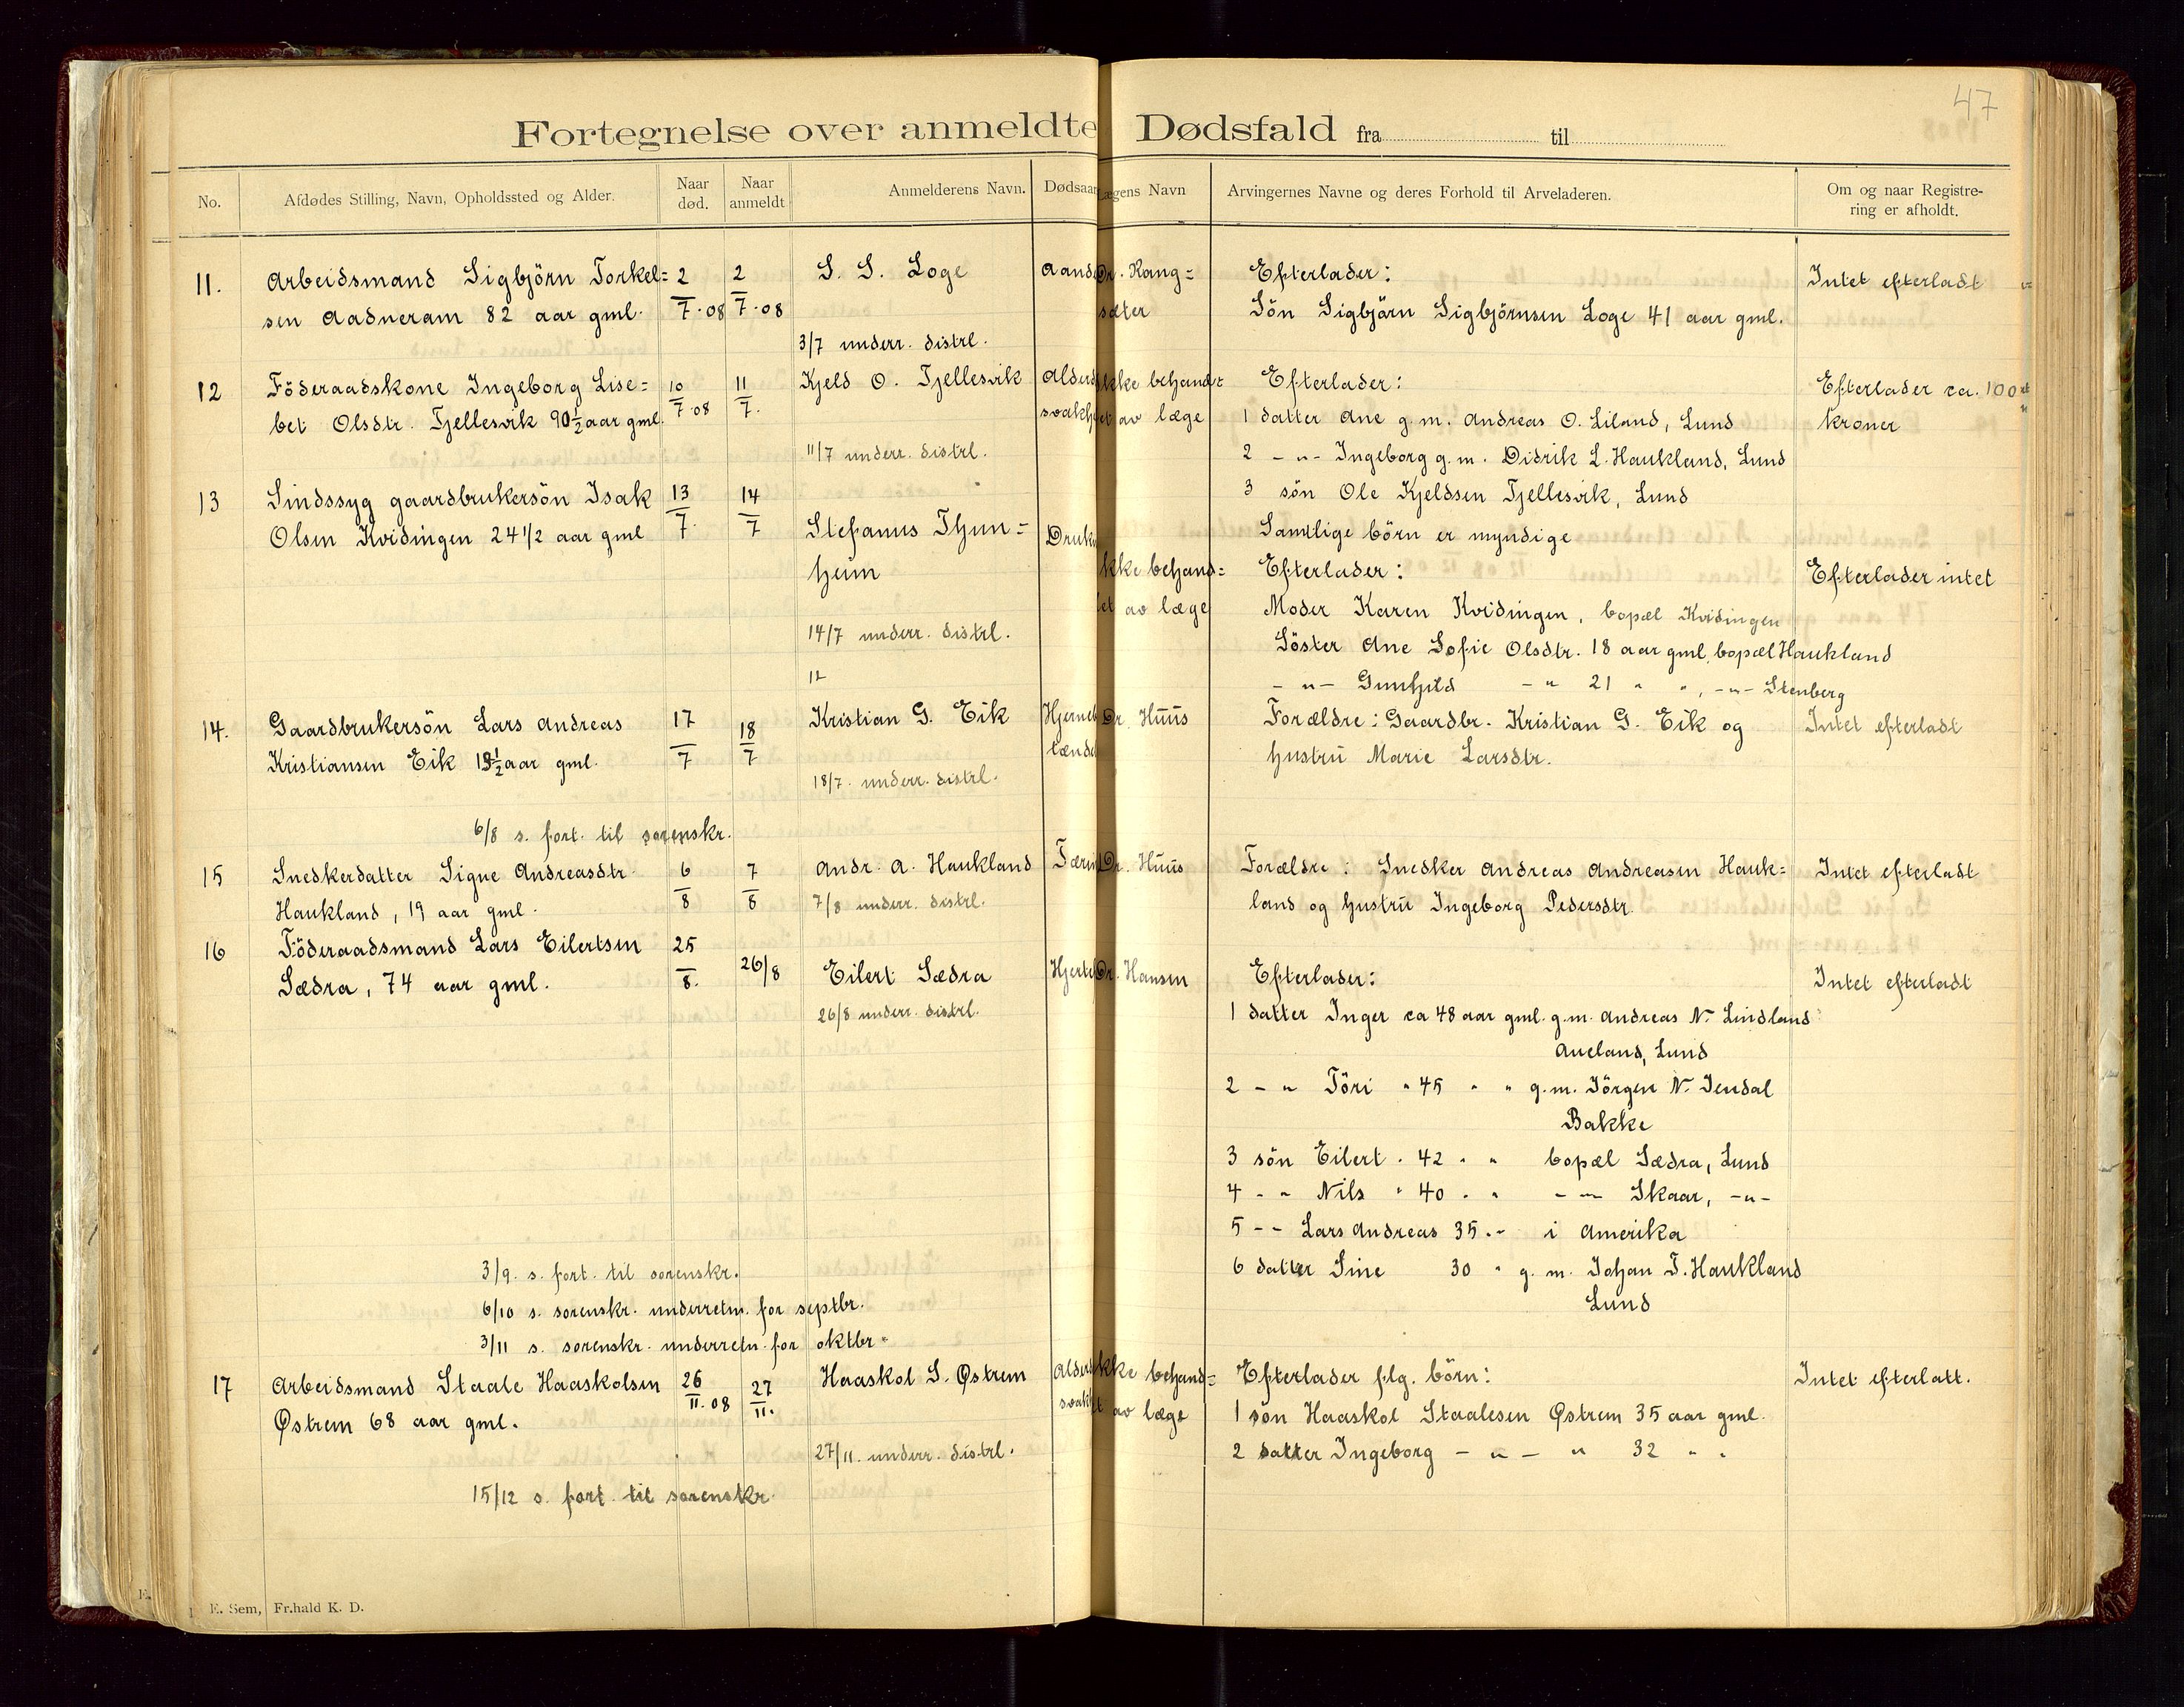 47
Fortegnelse over anmeldte Dødsfald fra til
No.
Afdødes Stilling, Navn, Opholdssted og Alder.
Naar død.
Naar anmeldt
Anmelderens Navn.
Dødsaar
Lægens Navn
Arvingernes Navne og deres Forhold til Arveladeren.
Om og naar Registre-
ring er afholdt.
11. Arbeidsmand Sigbjörn Torkel= 2 2 S. S. Loge Aande Dr. Kang= Efterlader: Intet efterladt
sen Aadneram 82 aar gml. 7.08 7.08 sæter Sön Sigbjörn Sigbjörnsen Loge 41 aar gml.
3/7 underr. distrl.
12 Föderaadskone Ingeborg Lise= 10 11 Kjeld O. Tjellesvik Alderd Ikke behand= Efterlader: Efterlader ca. 100
bet Olsdtr. Tjellesvik 90 1/2 aar gml. 7.08 7. svakh et av læge 1 datter Ane g.m. Andreas O. Liland, Lund kroner
11/7 underr. distrl. 2 -"- Ingeborg g.m. Didrik L. Haukland, Lund
3 sön Ole Kjeldsen Tjellesvik, Lund
Samtlige börn er myndige
13 Sindssyg gaardbrukersön Isak 13 14
Olsen Kvidingen 24 1/2 aar gml 7. 7 Stefanus Thun= Drukn
heim Ikke behand= Efterlader: Efterlader intet
et av læge Moder Karen Kvidingen, bopæl Kvidingen
14/7 underr. distrl. Söster Ane Sofie Olsdtr. 18 aar gml. bopæl Haukland
12 -"- Gunhild -" 21 " ", -"- Stenberg
14. Gaardbrukersön Lars Andreas 17 18 Kristian G. Eik Hjerneb Dr. Huus Forældre: Gaardbr. Kristian G. Eik og Intet efterladt
Kristiansen Eik 19 1/2 aar gml. 7 7 tænde hustru Marie Larsdtr.
18/7. underr. distrl.
6/8 s. fort. til sorenskr.
15 Snedkerdatter Signe Andreasdtr. 6 7 Andr. A. Haukland Tærin Dr. Huus Forældre: Snedker Andreas Andreasen Hauk= Intet efterladt
Haukland, 19 aar gml. 8 8 7/8 underr. distrl. land og hustru Ingeborg Pedersdtr.
16 Föderaadsmand Lars Eilertsen 25
Sædra, 74 aar gml. 8. 26/8 Eilert Sædra Hjertef Dr. Hansen Efterlader: Intet efterladt
26/8 underr. distrl. 1 datter Inger ca 48 aar gml. g.m. Andreas N. Lindland
Aueland, Lund
2 - " Töri " 45 " " g.m. Jörgen N. Jendal
Bakke
3 sön Eilert " 42 " " bopæl Sædra, Lund
4 - " Nils " 40 " " - "- Skaar, -"-
5 - - Lars Andreas 35 " - i Amerika
3/9. s. fort. til sorenskr. 6 datter Sine 30 " g. m. Johan T. Haukland
6/10 s. sorenskr. underretn. for septbr. Lund
3/11 s. sorenskr. underretn. for oktbr.
17 Arbeidsmand Staale Haaskolsen 26 27 Haaskol S. Østrem Alderd Ikke behand= Efterlader flg. börn: Intet efterlatt.
Østrem 68 aar gml. 11.08 11. svakh et av læge 1 sön Haaskol Staalesen Østrem 35 aar gml.
27/11. underr. distrl. 2 datter Ingeborg - " - " 32 " "
15/12 s. fort. til sorenskr.
E. Sem, Fr.hald K. D.